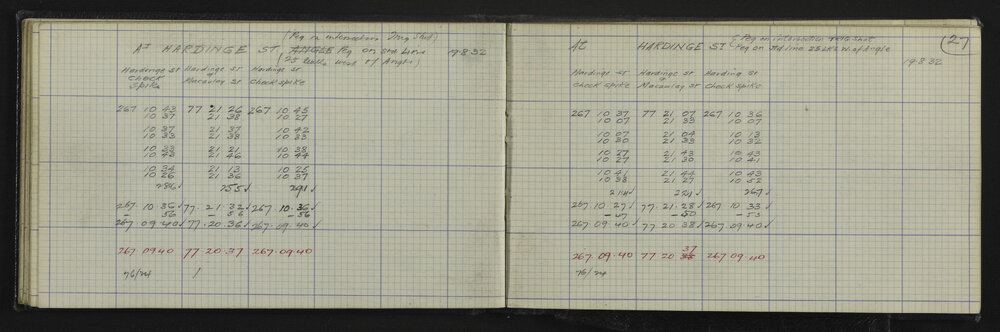 (Peg on intersection Trig Stn)
AT HARDINGE ST ANGLE Peg on Std Line 19.8.32
(25 links West of Angle)
Hardinge St Hardinge St Hardinge St
Check & Macaulay St Check Spike
Spike
267 10 43 77 21 26 267 10 45
10 37 21 38 10 27
10 37 21 37 10 42
10 33 21 38 10 33
10 33 21 21 10 38
10 43 21 46 10 44
10 34 21 13 10 25
10 26 21 36 10 37
286✓ 255✓ 291✓
267.10.36✓ 77.21.32✓ 267.10.36✓
- 56 - 56 - 56
267 09 40✓ 77.20.36✓ 267.09.40✓
267 09 40 77 20 37 267.09.40
76/24 /
(27)
Peg on intersection Trig Stn
AT HARDINGE ST Peg on Std line 25 Lks W. of Angle
19.8.32
Hardinge St Hardinge St Harding St
Check Spike & Macaulay St Check Spike
267 10 37 77 21 07 267 10 36
10 07 21 33 10 07
10 07 21 04 10 13
10 30 21 33 10 32
10 27 21 43 10 43
10 27 21 30 10 41
10 41 21 44 10 43
10 38 21 27 10 52
214✓ 221✓ 267✓
267 10 27✓ 77.21.28✓ 267 10 33✓
- 47 - 50 - 53
267 09 40✓ 77 20 38✓ 267.09.40✓
37
267.09.40 77 20 38 267 09.40
76/24